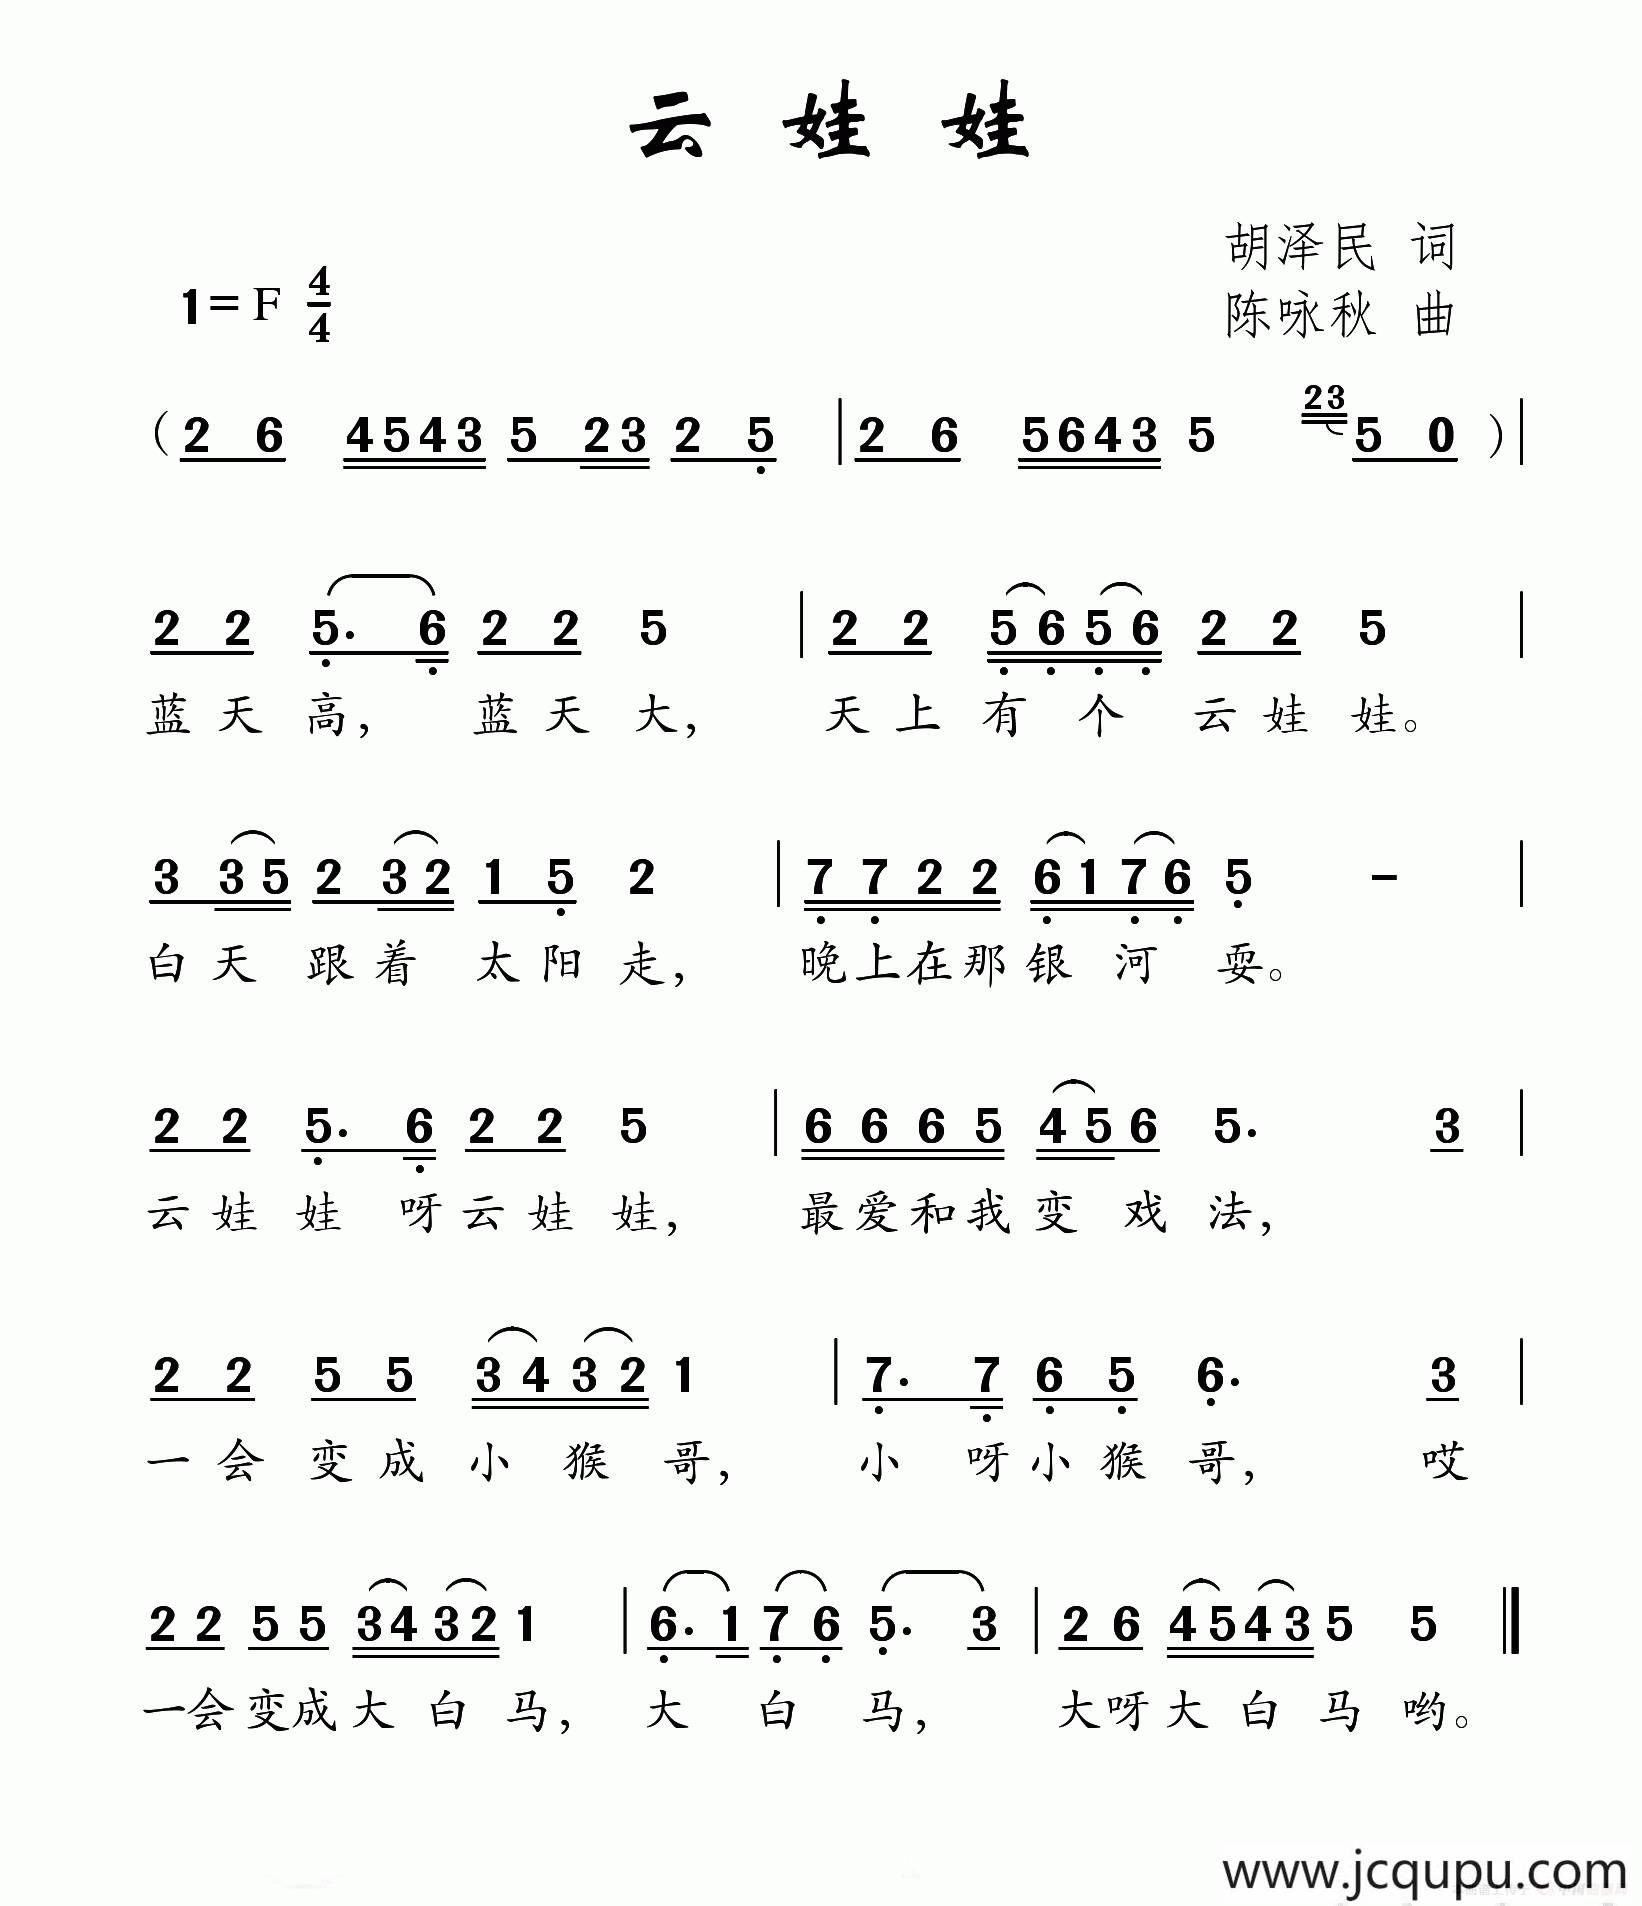 云 娃 娃
胡泽民 词
1= F 4/4
陈咏秋 曲
( 2 6 4543 5 23 2 5 | 2 6 5643 5 23 5 0 ) |
2 2 5. 6 2 2 5 | 2 2 5 6 5 6 2 2 5 |
蓝 天 高, 蓝 天 大, 天 上 有 个 云 娃 娃。
3 3 5 2 3 2 1 5 2 | 7 7 2 2 6 1 7 6 5 - |
白 天 跟 着 太 阳 走, 晚 上 在 那 银 河 耍。
2 2 5. 6 2 2 5 | 6 6 6 5 4 5 6 5. 3 |
云 娃 娃 呀 云 娃 娃, 最 爱 和 我 变 戏 法,
2 2 5 5 3 4 3 2 1 | 7. 7 6 5 6. 3 |
一 会 变 成 小 猴 哥, 小 呀 小 猴 哥, 哎
2 2 5 5 3 4 3 2 1 | 6. 1 7 6 5. 3 | 2 6 4 5 4 3 5 5 ‖
一 会 变 成 大 白 马, 大 白 马, 大 呀 大 白 马 哟。
www.jcqupu.com